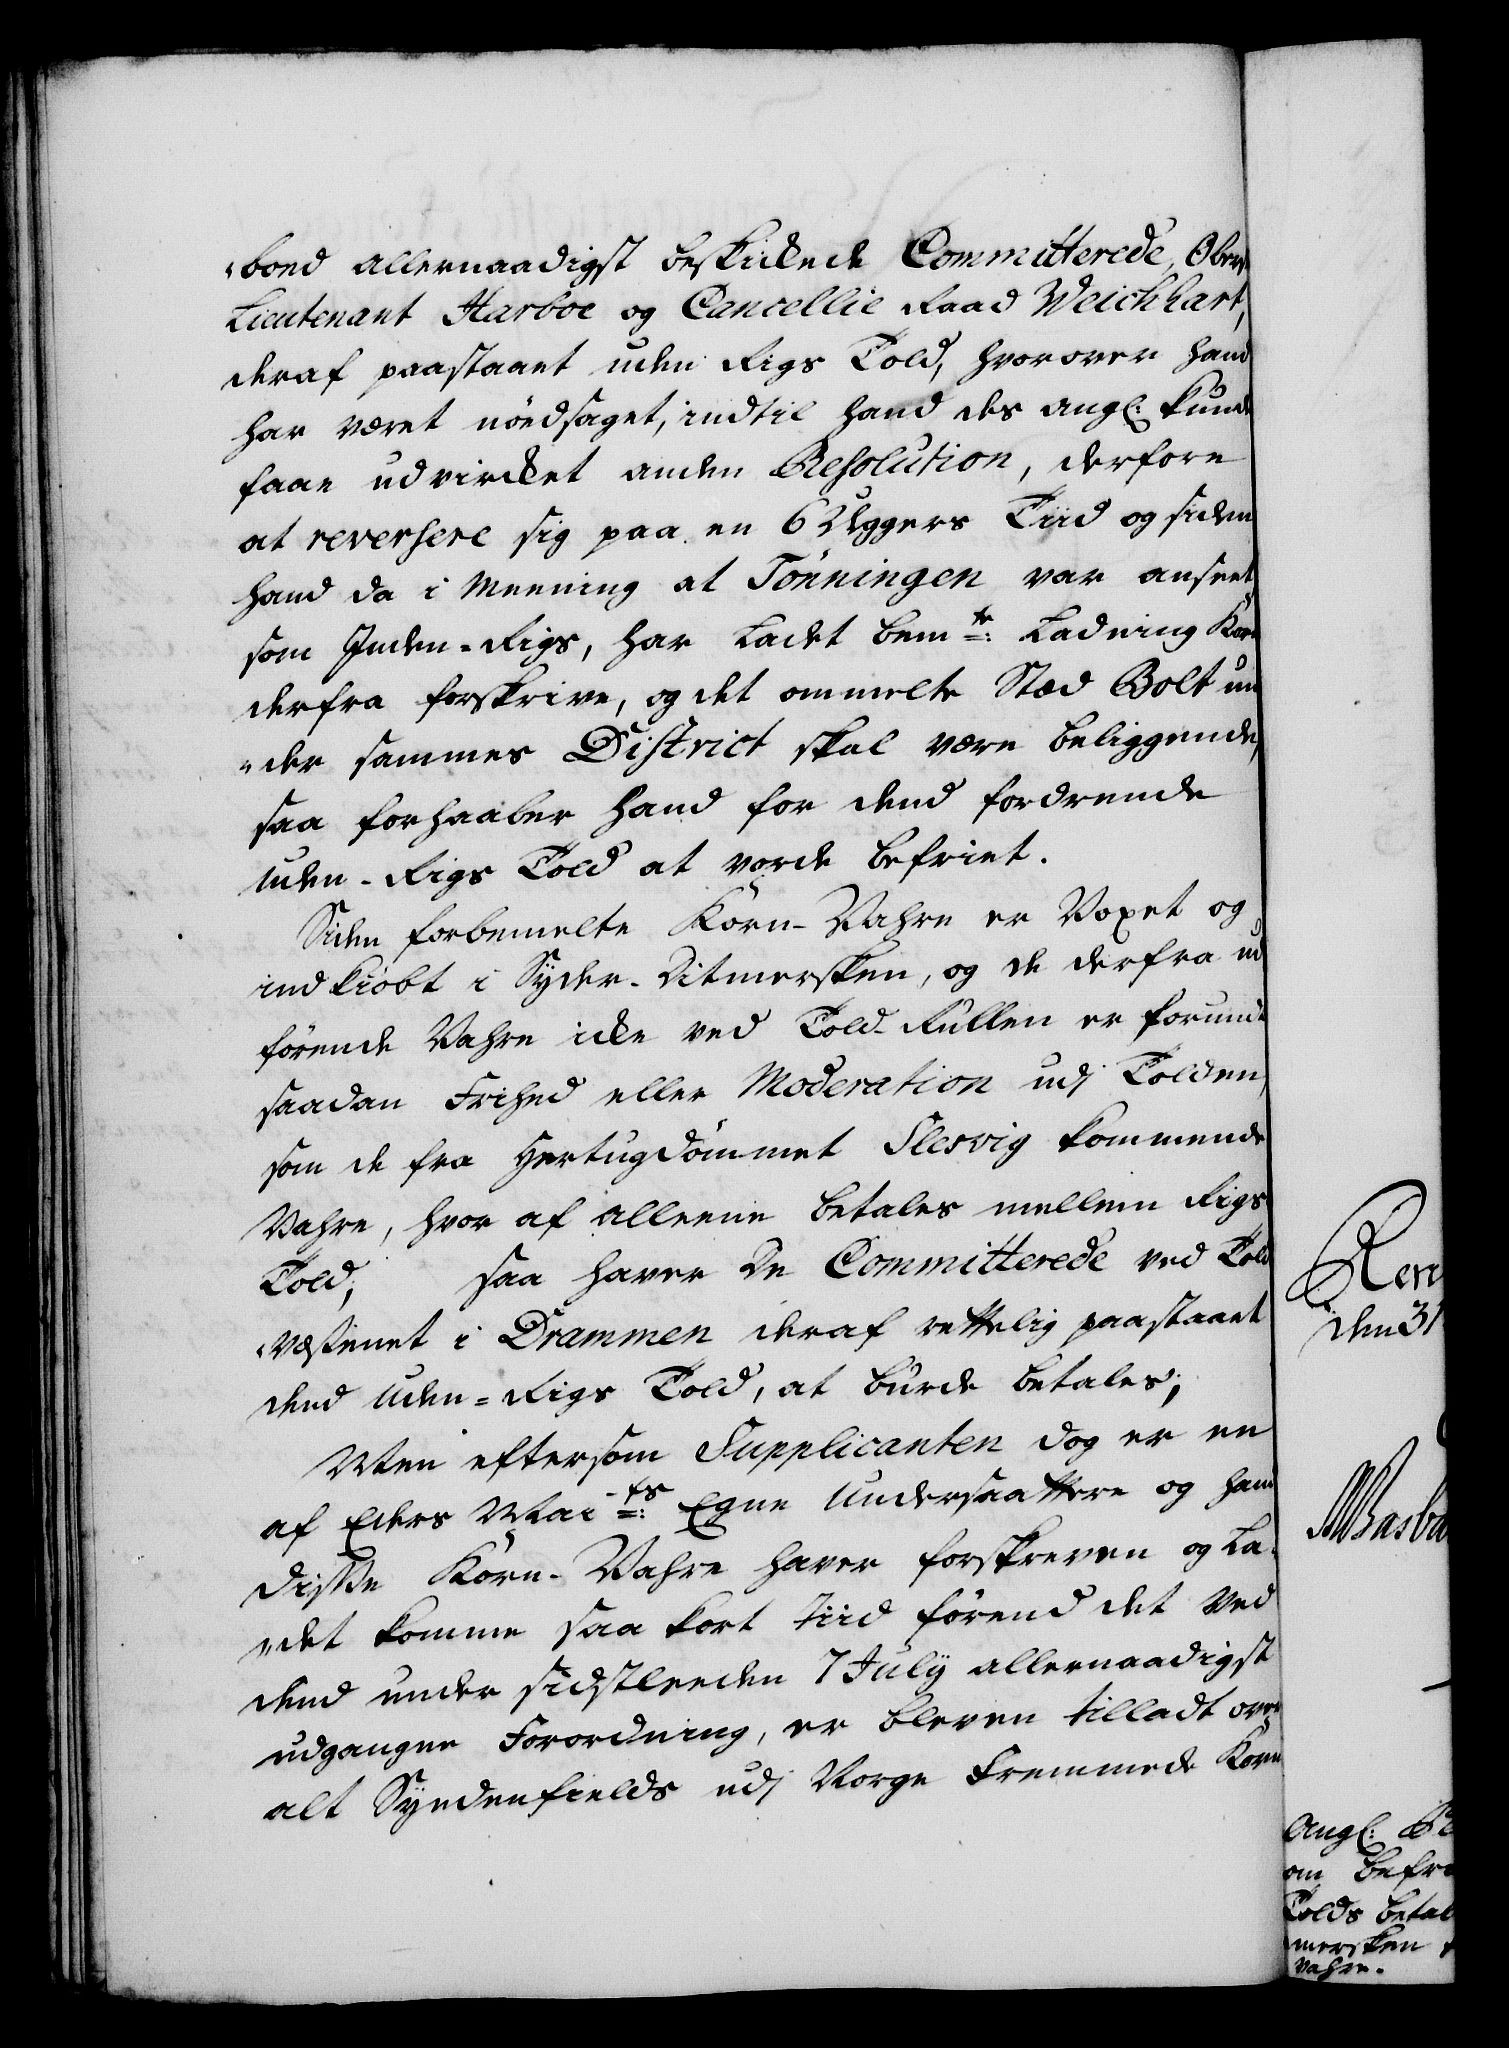 "boed allernaadigst beskickede Committerede, Oberst
Lieutenant Harboe og Cancellie Raad Weichhart,
deraf paastaaet uden Rigs Told, hvorover hand
har været nödsaget, indtil hand des angl: kunde
faae udvircket anden Resolution, derfore
at reversere sig paa en 6 Uggers Tiid og siden
hand da i Meening at Tönningen var anseet
som Inden-Rigs, har Ladet bem:te Ladning Korn
derfra forskrive, og det ommelte Stæd Bolt un
"der sammes District skal være beliggende,
saa forhaaber hand for dend fordrende
Uden-Rigs Told at vorde befriet.
Siden forbemelte Korn-Vahre er Voxet og
indkiöbt i Syder-Ditmersken, og de derfra ud
förende Vahre icke ved Told-Rullen er forundt
saadan Frihed eller Moderation udj Tolden,
som de fra Hertugdömmet Slesvig kommende
Vahre, hvor af alleene betales mellem Rigs
Told; saa haver De Committerede ved Told
"væsenet i Drammen deraf rettelig paastaaet
dend Uden-Rigs Told, at burde betales;
Men eftersom Supplicanten dog er en
af Eders Mai:ts Egne Undersaattere og hand
disse Korn-Vahre haver forskreven og La-
"det komme saa kort tiid förend det ved
dend under sidstleeden 7 July allernaadigst
udgangne Forordning, er bleven tilladt over
alt Syndenfields udj Norge Fremmede Korn
den 31
Angl:
om befri
Tolds betal
mersken
Vahre.